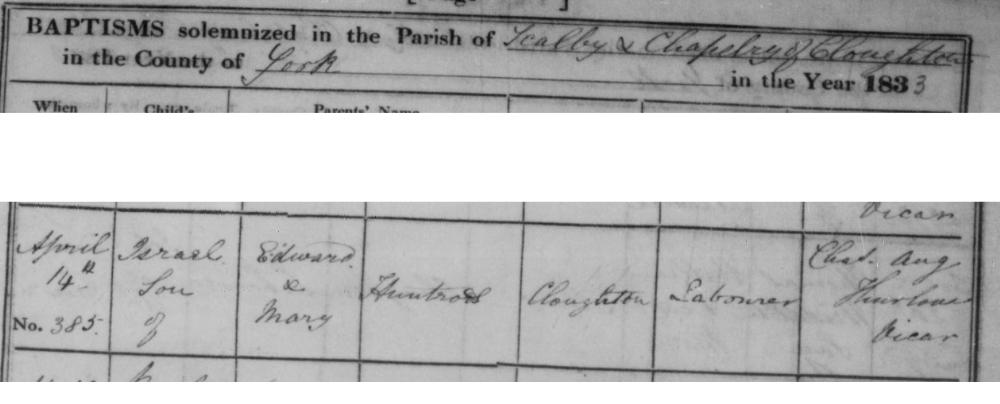 BAPTISMS solemnized in the Parish of Scalby & Chapelry of Cloughton
in the County of York in the Year 1833
When Child's Parents' Name
Vicar
April 14th No. 385 Israel Son of Edward & Mary Huntrods Cloughton Labourer Chas. Aug Thurlow Vicar